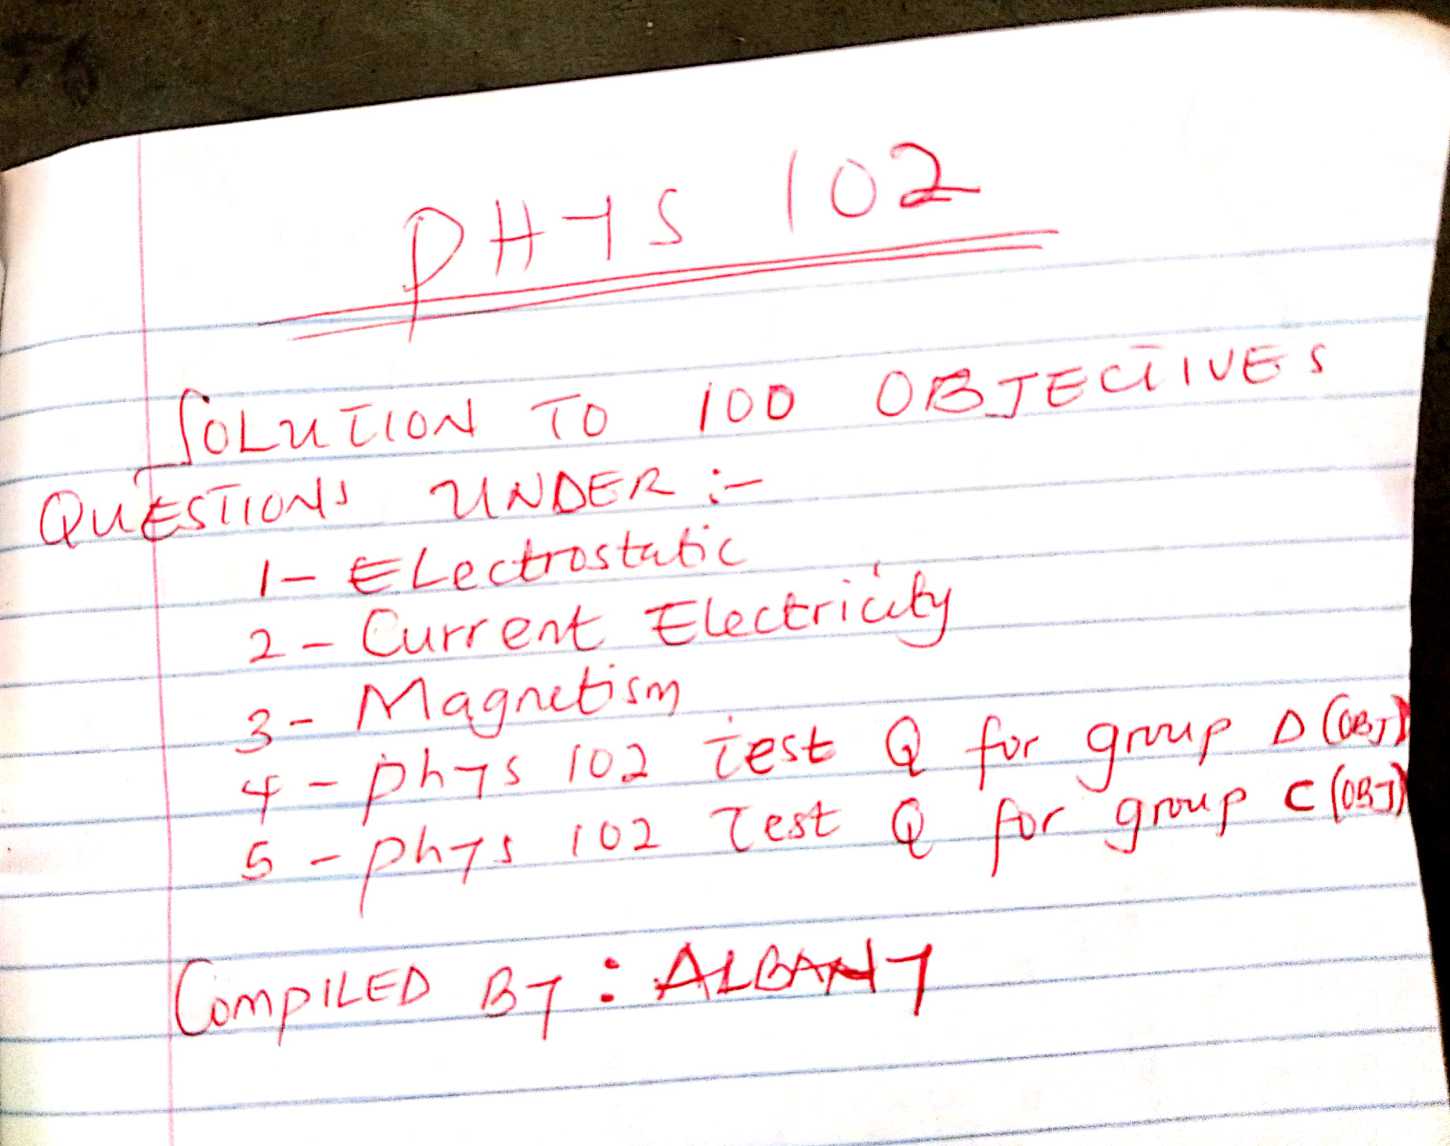 PHYS 102
SOLUTION TO 100 OBJECTIVES
QUESTIONS UNDER :-
1- Electrostatic
2- Current Electricity
3- Magnetism
4- Phys 102 Test Q for group D (OBJ)
5- Phys 102 Test Q for group C (OBJ)
COMPILED BY : ALBANY